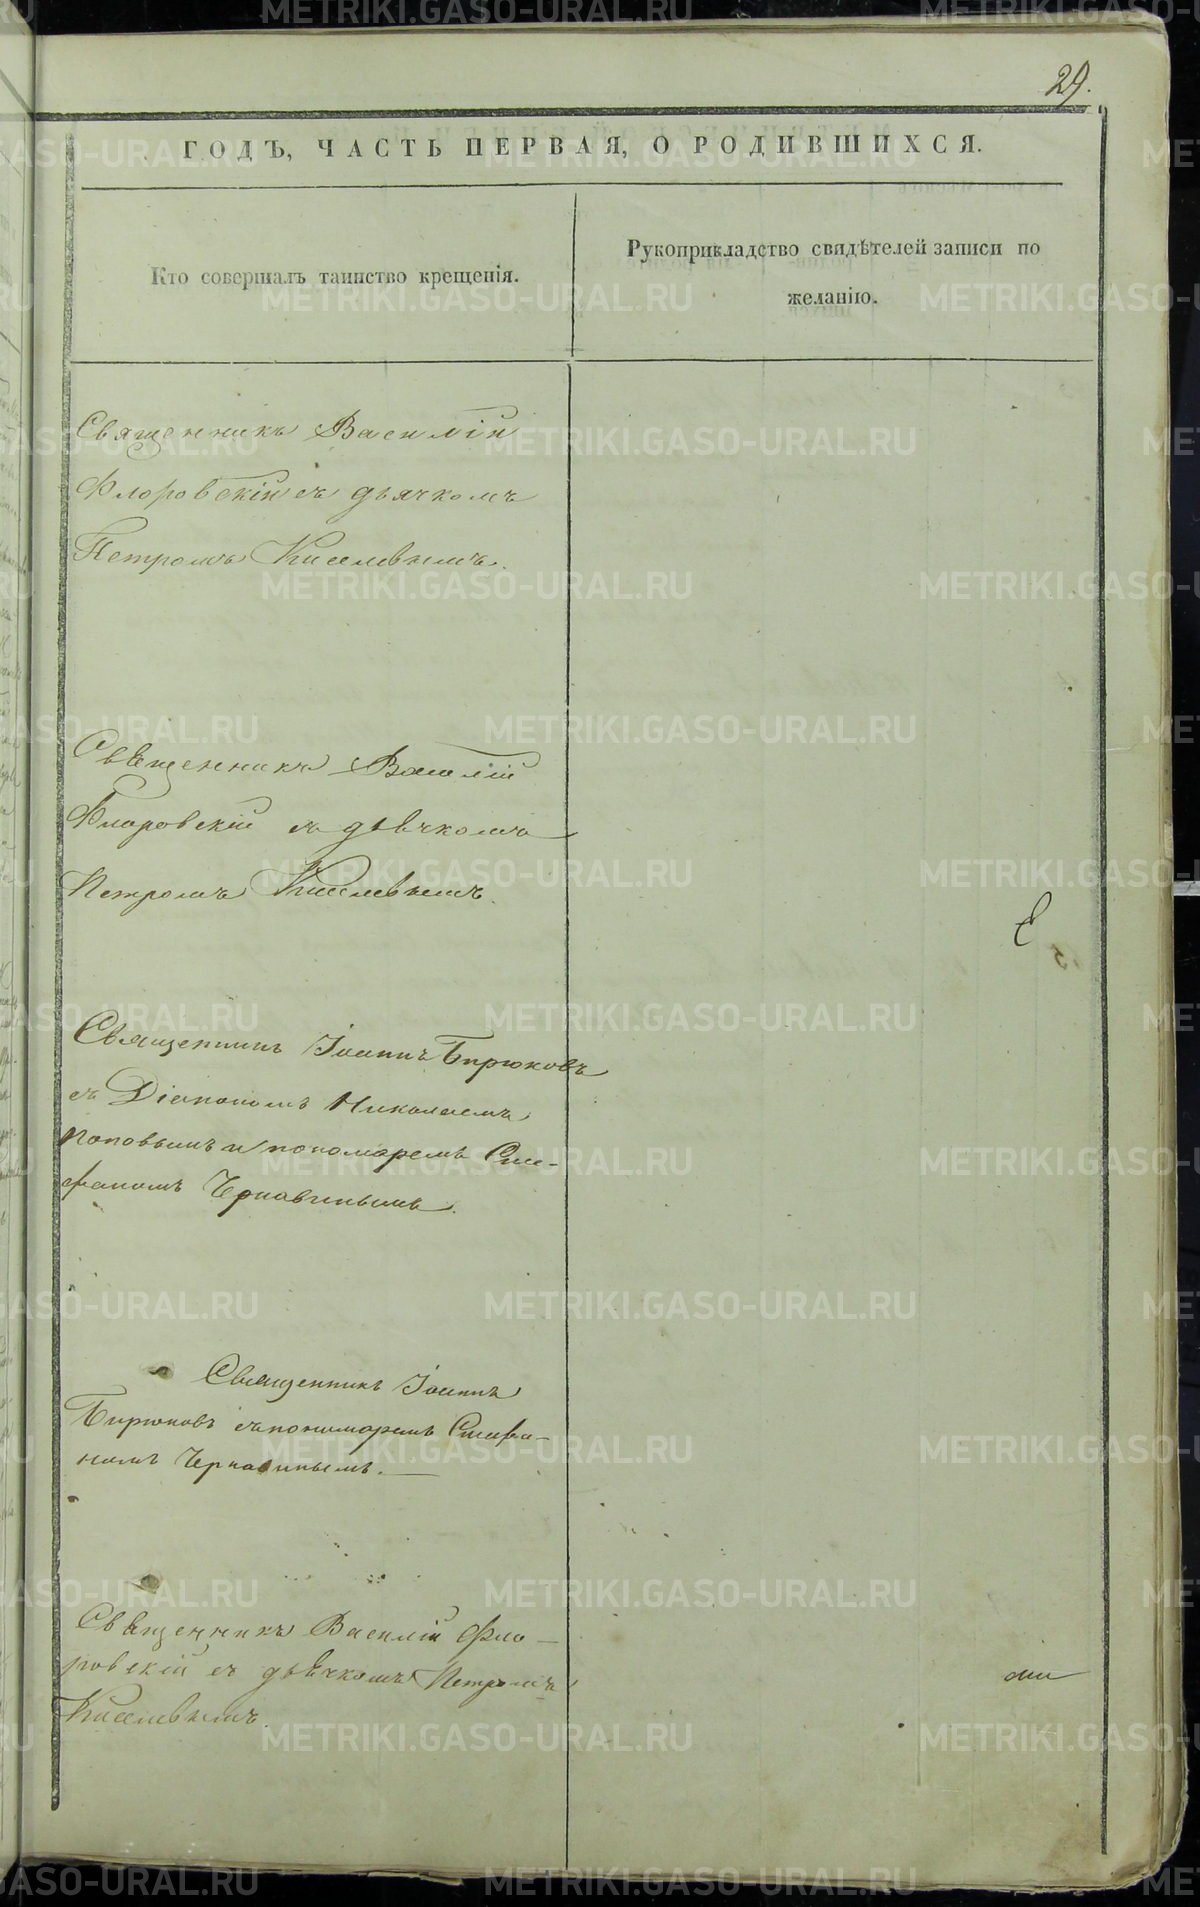 29.
ГОДЪ, ЧАСТЬ ПЕРВАЯ, О РОДИВШИХСЯ.
Кто совершалъ таинство крещенія.
Рукоприкладство свидѣтелей записи по
желанію.
Священникъ Василій
Флоровскій съ дьячкомъ
Петромъ Киселевымъ.
Свѣщенникъ Василій
Флоровскій съ дьѣчкомъ
Петромъ Киселевымъ.
Священникъ Іоаннъ Бирюковъ
съ Діакономъ Николаемъ
Поповымъ и пономаремъ Сте-
фаномъ Чернавинымъ.
Священникъ Іоаннъ
Бирюковъ съ пономаремъ Стефа-
номъ Чернавинымъ.
Свѣщенникъ Василій Фло-
ровскій съ дьѣчкомъ Петромъ
Киселевымъ.
METRIKI.GASO-URAL.RU